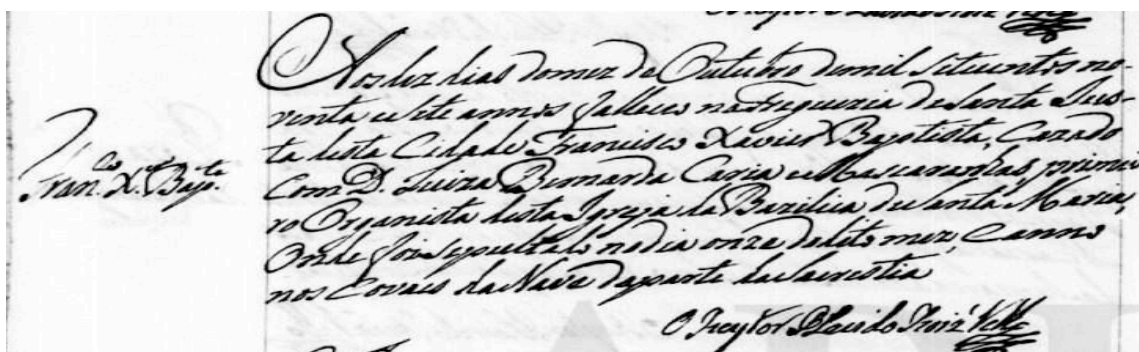 Aos dez dias do mez de Outubro de mil Setecentos no-
venta e sete annos falleceo na freguezia de Santa Jus-
ta desta Cidade Francisco Xavier Baptista, Cazado
Com D. Luiza Bernarda Caria e Mascarenhas, primei-
Fran.co X.er Bap.ta
ro Organista desta Igreja da Bazilica de Santa Maria,
Onde foi sepultado no dia onze do dito mez, e anno
nos Covaes da Nave da parte da Sacrestia
O Reytor Placido